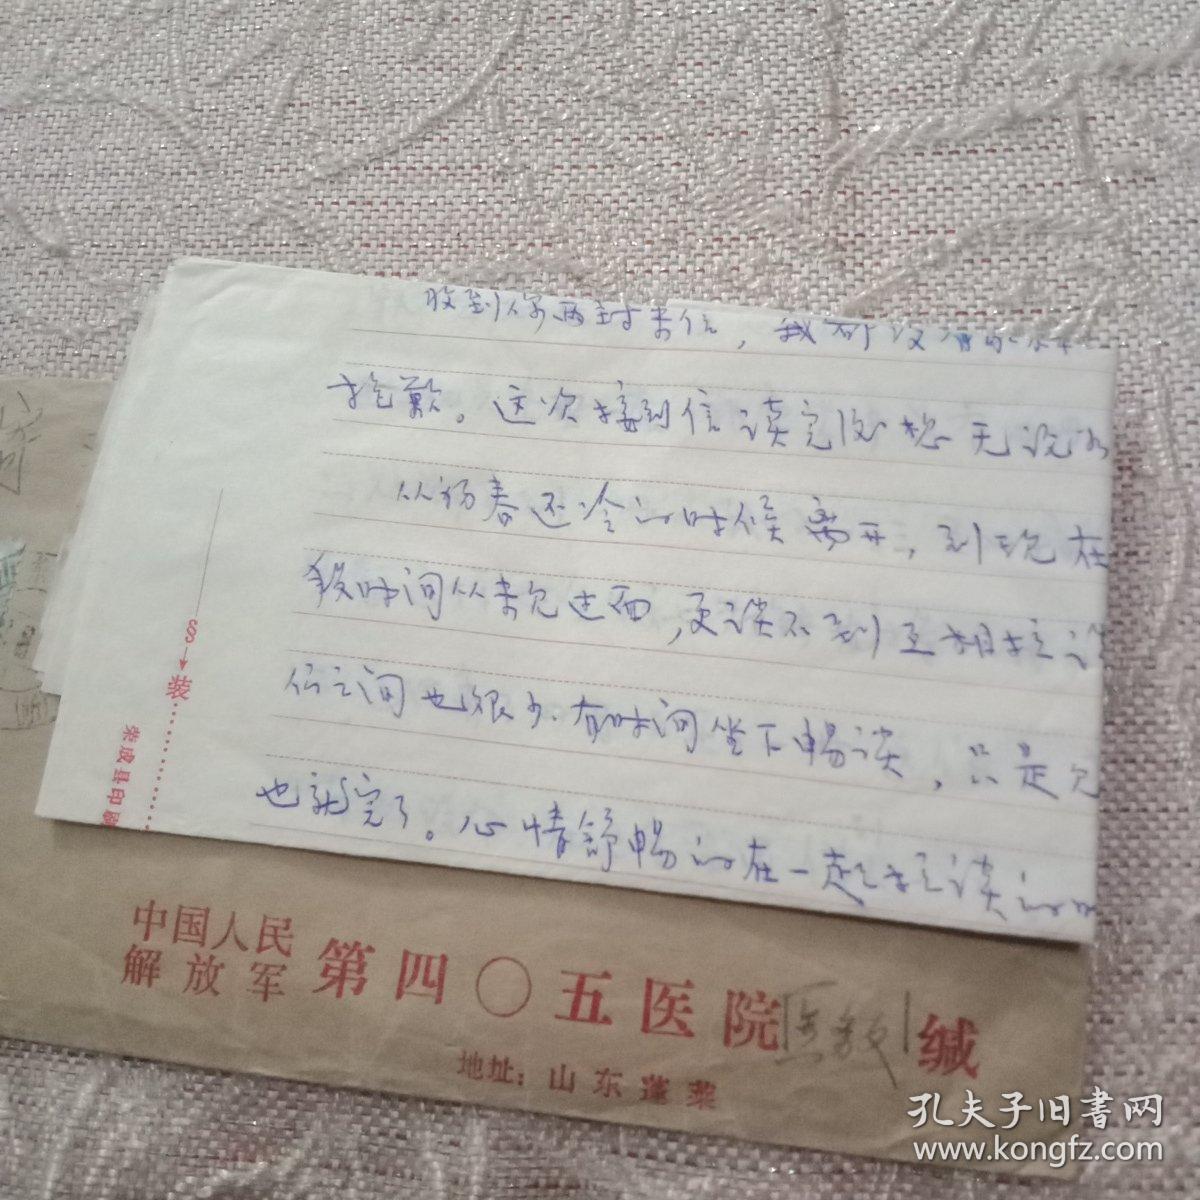 收到你两封来信，我都没有
抱歉。这次接到信读完后想无论如
从初春还冷的时候离开，到现在
段时间从未见过面，更谈不到互相交谈
们之间也很少有时间坐下畅谈，只是见
也就完了。心情舒畅的在一起交谈的时
§→装
荣成县印刷
中国人民
解放军
第四〇五医院
缄
地址：山东蓬莱
孔夫子旧書网
www.kongfz.com